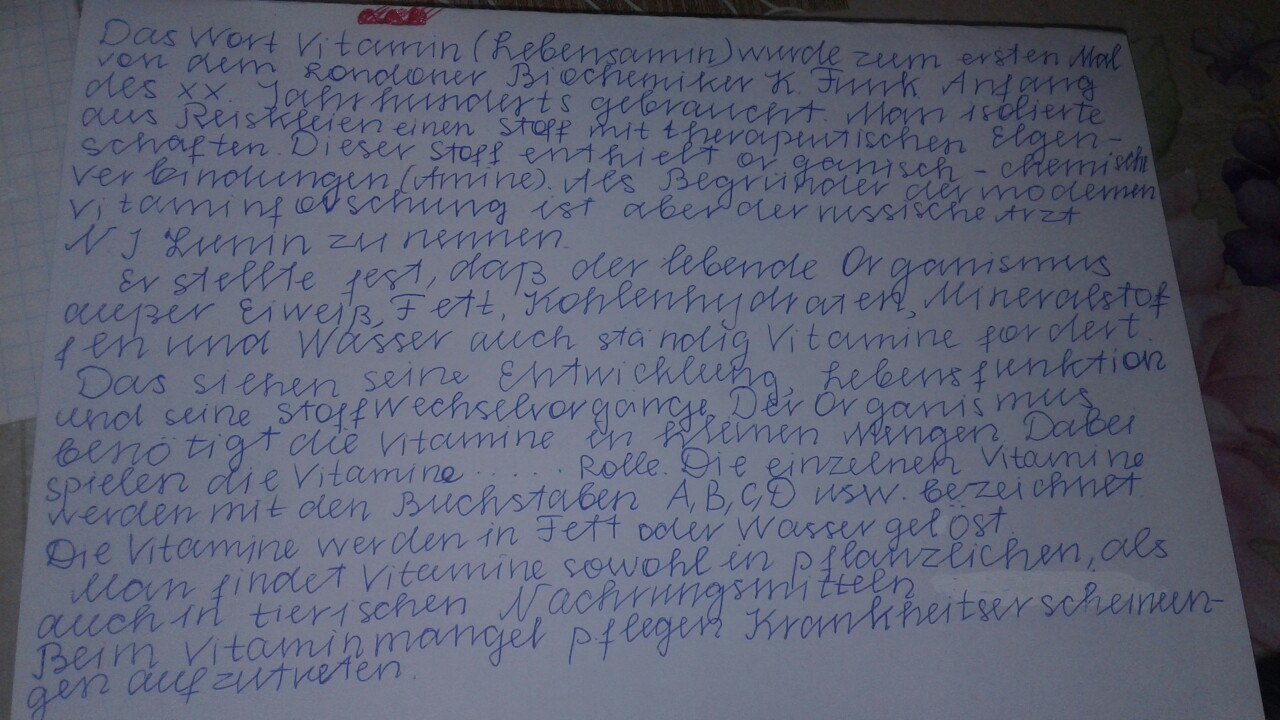 Das Wort Vitamin (Lebensamin) wurde zum ersten Mal
von dem Londoner Biochemiker K. Funk Anfang
des XX. Jahrhunderts gebraucht. Man isolierte
aus Reiskleien einen Stoff mit therapeutischen Eigen-
schaften. Dieser Stoff enthielt organisch-chemische
Verbindungen (Amine). Als Begründer der modernen
Vitaminforschung ist aber der russische Arzt
N J Lunin zu nennen.
Er stellte fest, daß der lebende Organismus
außer Eiweiß, Fett, Kohlenhydraten, Mineralstof
fen und Wasser auch ständig Vitamine fordert.
Das siehen seine Entwicklung, Lebensfunktion
und seine Stoffwechselvorgänge. Der Organismus
benötigt die Vitamine in kleinen Mengen. Dabei
spielen die Vitamine ...... Rolle. Die einzelnen Vitamine
werden mit den Buchstaben A, B, C, D usw. bezeichnet
Die Vitamine werden in Fett oder Wasser gelöst.
Man findet Vitamine sowohl in pflanzlichen, als
auch in tierischen Nachrungsmitteln
Beim Vitaminmangel pflegen Krankheitserscheinun-
gen aufzutreten.